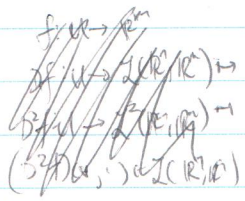 f: U → ℝᵐ
Df: U → L(ℝⁿ, ℝᵐ)
D²f: U → L²(ℝⁿ, ℝᵐ)
(D²f)(x, ·) ∈ L(ℝⁿ, ℝᵐ)